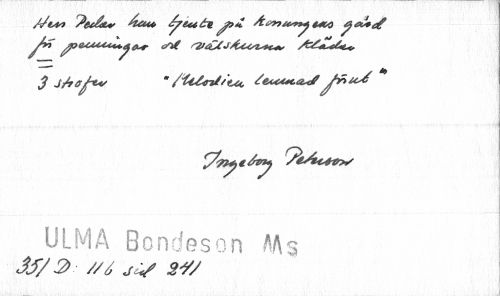 Herr Peder han tjente på konungens gård
för penningar och välskurna kläder
3 strofer "Melodien lemnad förut"
Ingeborg Peterson
ULMA Bondeson Ms
351 D: 116 sid 241